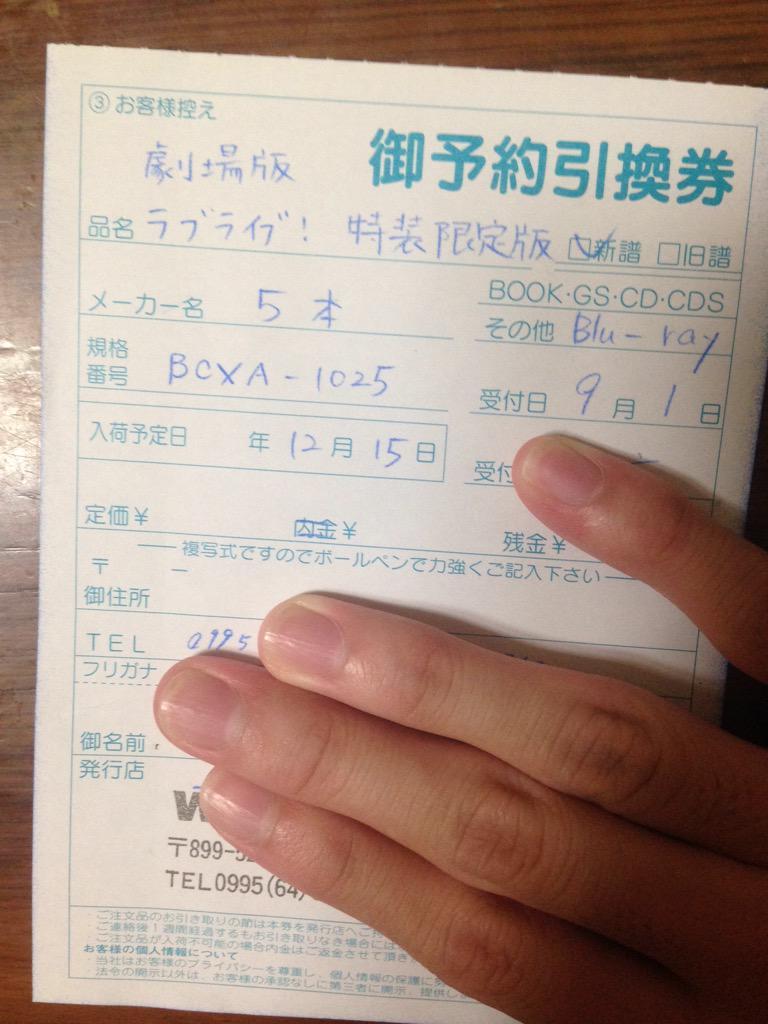 ③お客様控え
御予約引換券
劇場版
品名 ラブライブ! 特装限定版 ☑新譜 □旧譜
メーカー名 5本
BOOK・GS・CD・CDS
その他 Blu-ray
規格番号 BCXA-1025
受付日 9月1日
入荷予定日 年12月15日
受付
定価¥ 内金¥ 残金¥
複写式ですのでボールペンで力強くご記入下さい
〒 ー
御住所
TEL 0995
フリガナ
御名前
発行店
W
〒899-52
TEL0995(64)
・ご注文品のお引き取りの節は本券を発行店へご
・ご連絡後1週間経過するもお引き取りなき場合には
・ご注文品が入荷不可能の場合内金はご返金させて頂き
お客様の個人情報について
・当社はお客様のプライバシーを尊重し、個人情報の保護に
法令の開示以外は、お客様の承認なしに第三者に開示、提供し